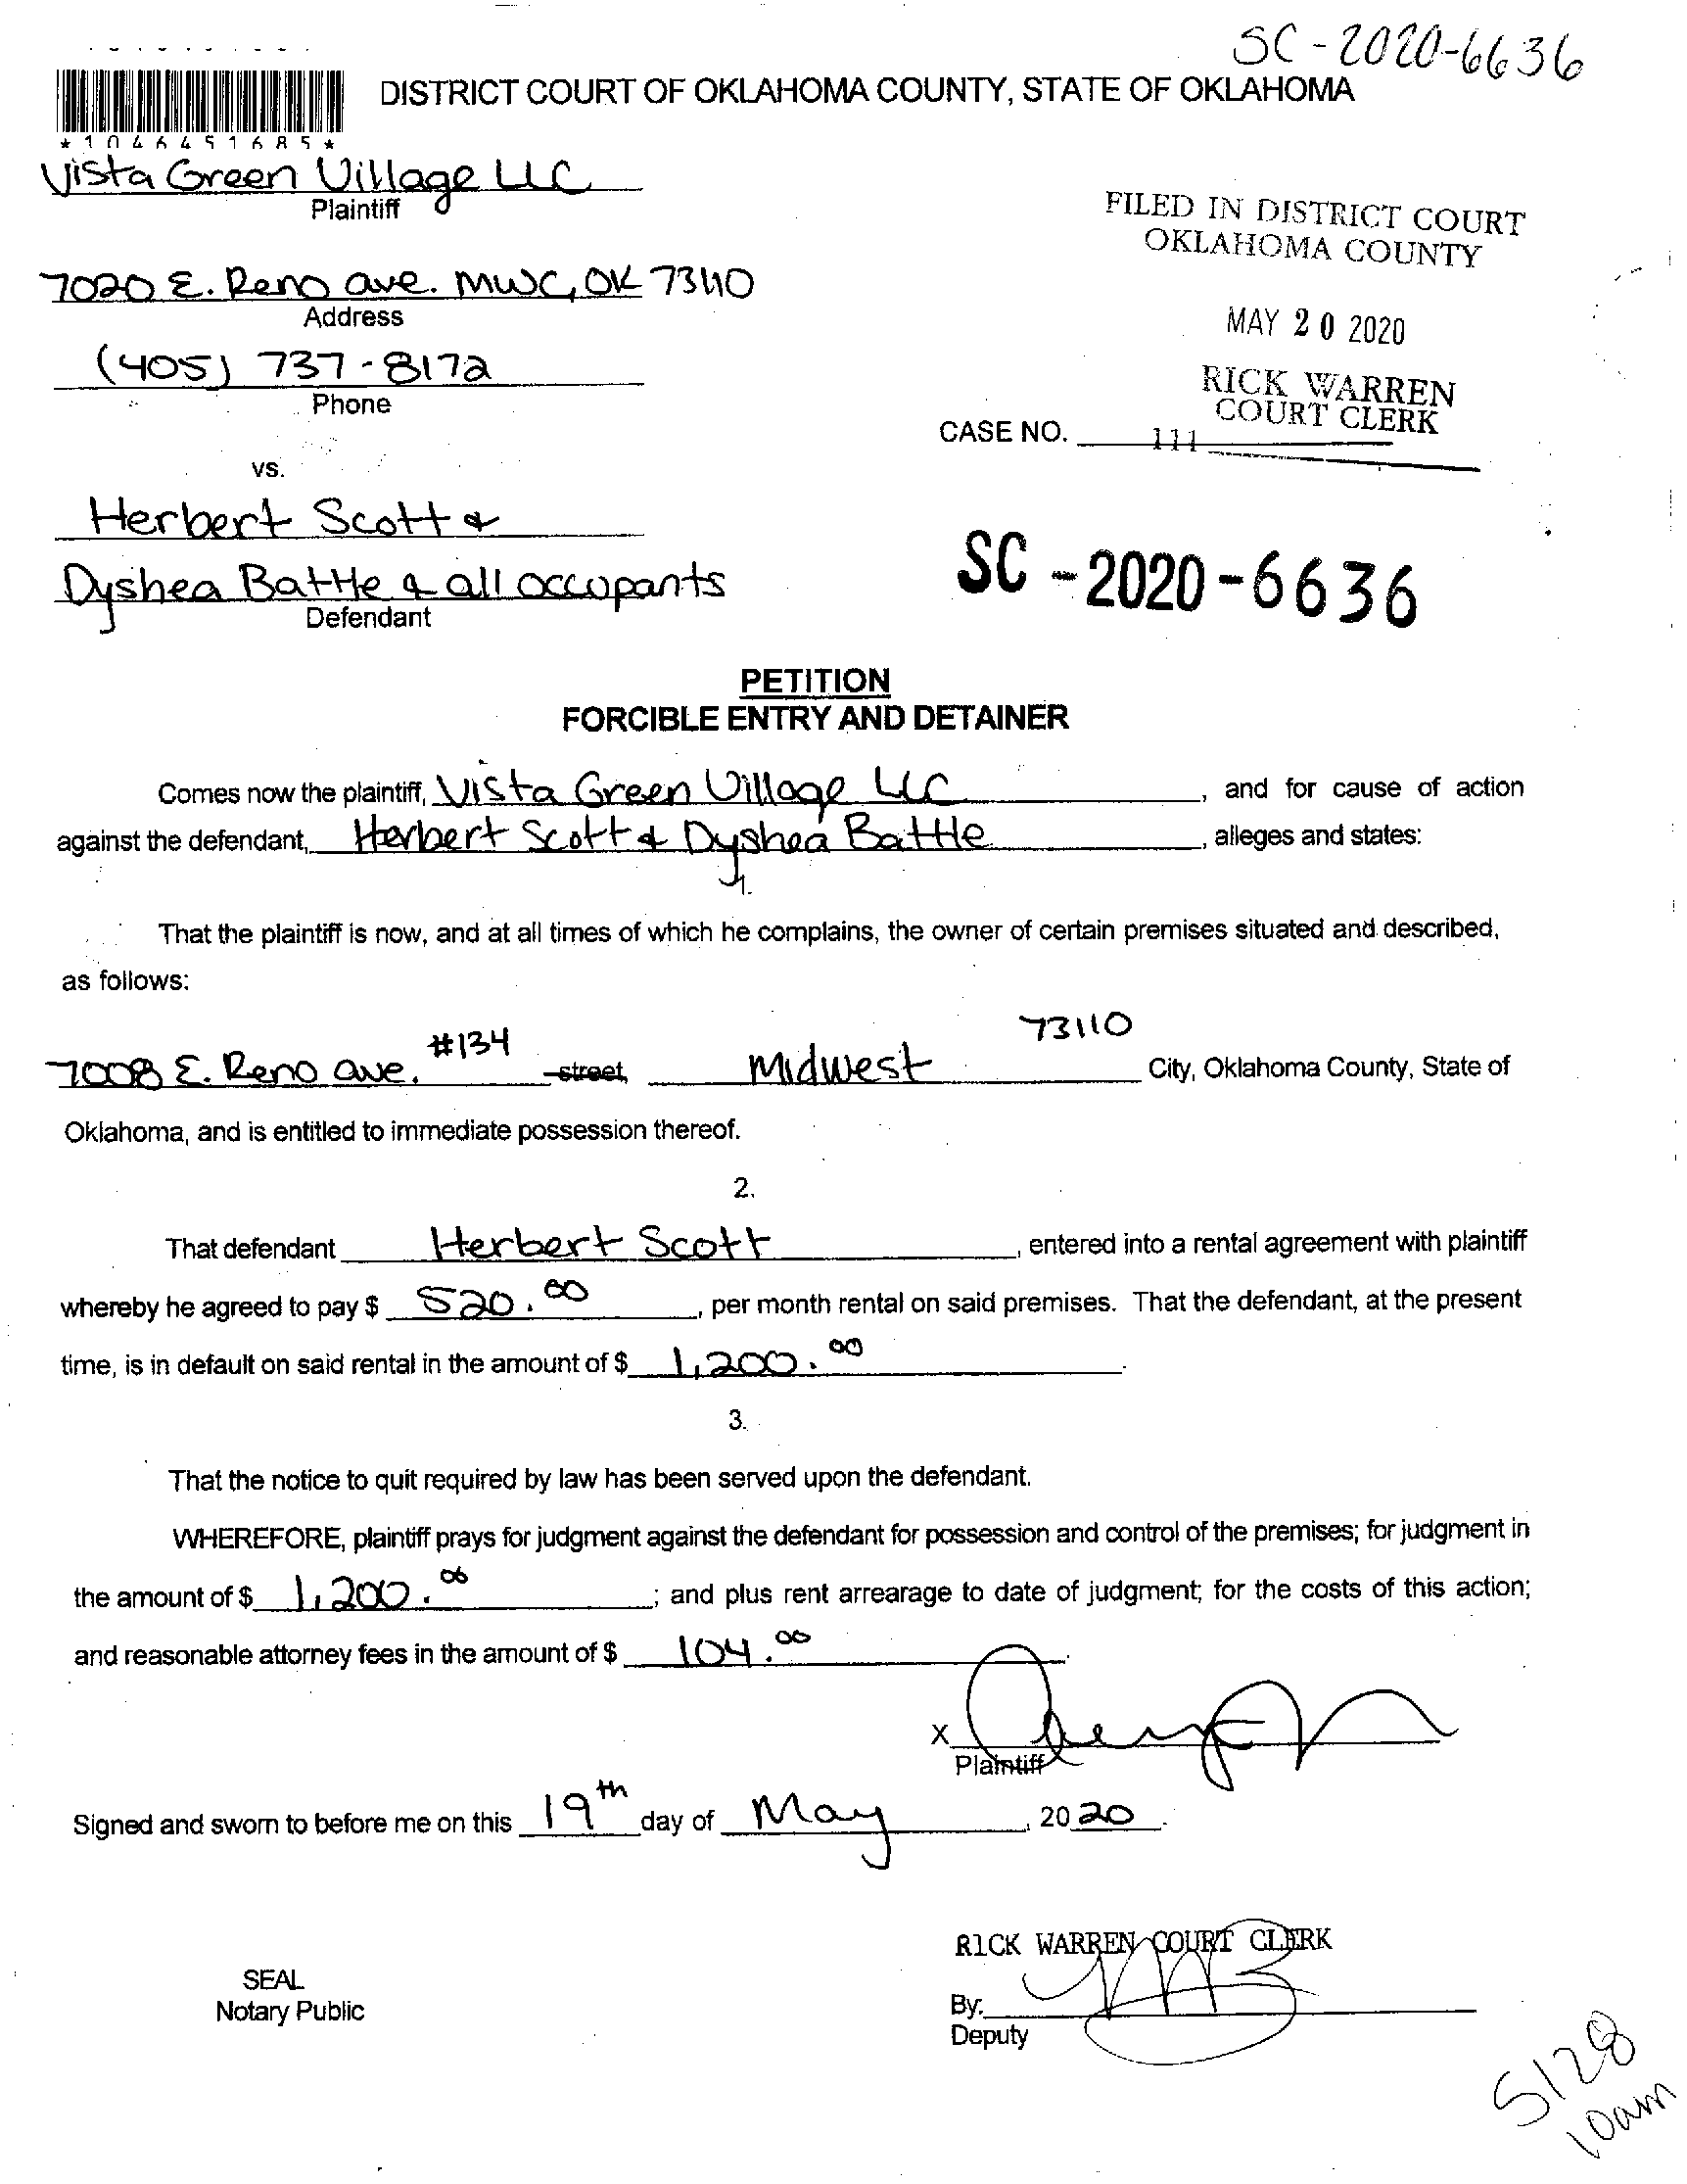 SC-2020-6636
DISTRICT COURT OF OKLAHOMA COUNTY, STATE OF OKLAHOMA
*1046451685*
Vista Green Village LLC
Plaintiff
FILED IN DISTRICT COURT
OKLAHOMA COUNTY
7020 E. Reno ave. MWC, OK 73110
Address
MAY 20 2020
(405) 737-8172
Phone
RICK WARREN
COURT CLERK
CASE NO. 111
vs.
Herbert Scott &
Dyshea Battle & all occupants
Defendant
SC-2020-6636
PETITION
FORCIBLE ENTRY AND DETAINER
Comes now the plaintiff, Vista Green Village LLC, and for cause of action
against the defendant, Herbert Scott & Dyshea Battle, alleges and states:
1.
That the plaintiff is now, and at all times of which he complains, the owner of certain premises situated and described,
as follows:
7008 E. Reno ave. #134 street, Midwest 73110 City, Oklahoma County, State of
Oklahoma, and is entitled to immediate possession thereof.
2.
That defendant Herbert Scott, entered into a rental agreement with plaintiff
whereby he agreed to pay $ 520.00, per month rental on said premises. That the defendant, at the present
time, is in default on said rental in the amount of $ 1,200.00.
3.
That the notice to quit required by law has been served upon the defendant.
WHEREFORE, plaintiff prays for judgment against the defendant for possession and control of the premises; for judgment in
the amount of $ 1,200.00; and plus rent arrearage to date of judgment; for the costs of this action;
and reasonable attorney fees in the amount of $ 104.00.
X
Plaintiff
Signed and sworn to before me on this 19th day of May, 2020.
RICK WARREN COURT CLERK
SEAL
Notary Public
By:
Deputy
5128
10am